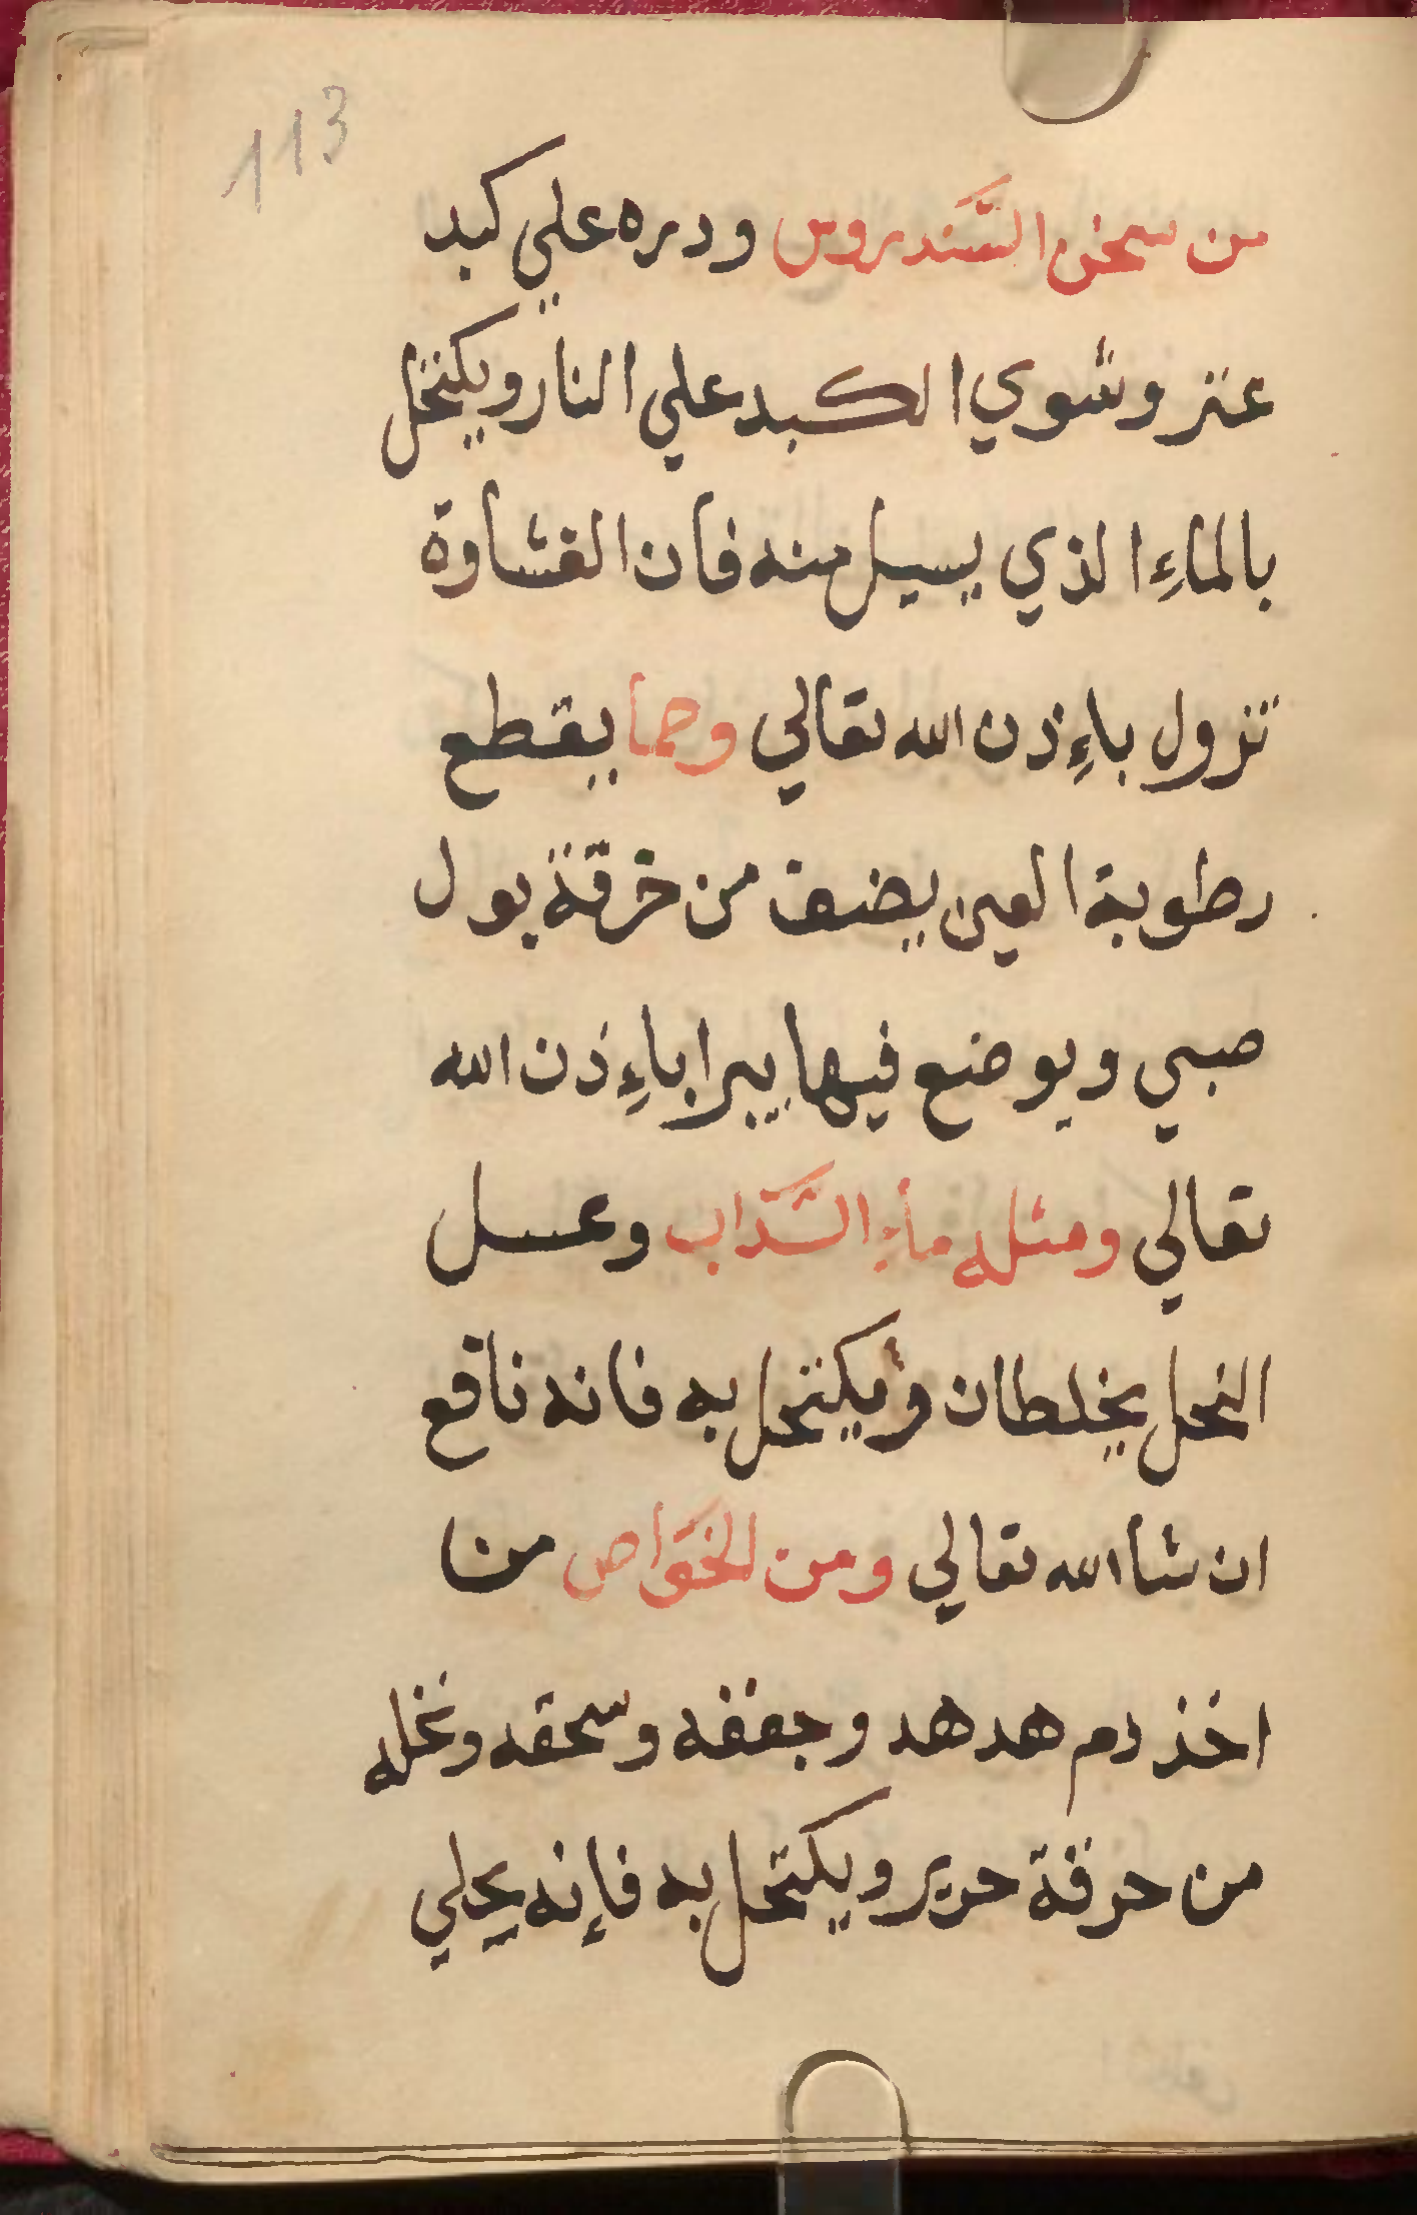 113
من سحق السَّندروس ودره علي كبد
عنز وشوي الكبد علي النار ويكتحل
بالماءِ الذي يسيل منه فان الغشاوة
تزول باءِذن الله تعالي ومما يقطع
رطوبة العين يضف من خرقة بول
صبي ويوضع فيها يبرا باءِذن الله
تعالي ومثله ماءِ السَّذاب وعسل
النحل يخلطان ويكتحل به فانه نافع
ان شا الله تعالي ومن الخوَاص من
اخذ دم هدهد وجففه وسحقه ونخله
من حرقة حرير ويكتحل به فإنه يجلي